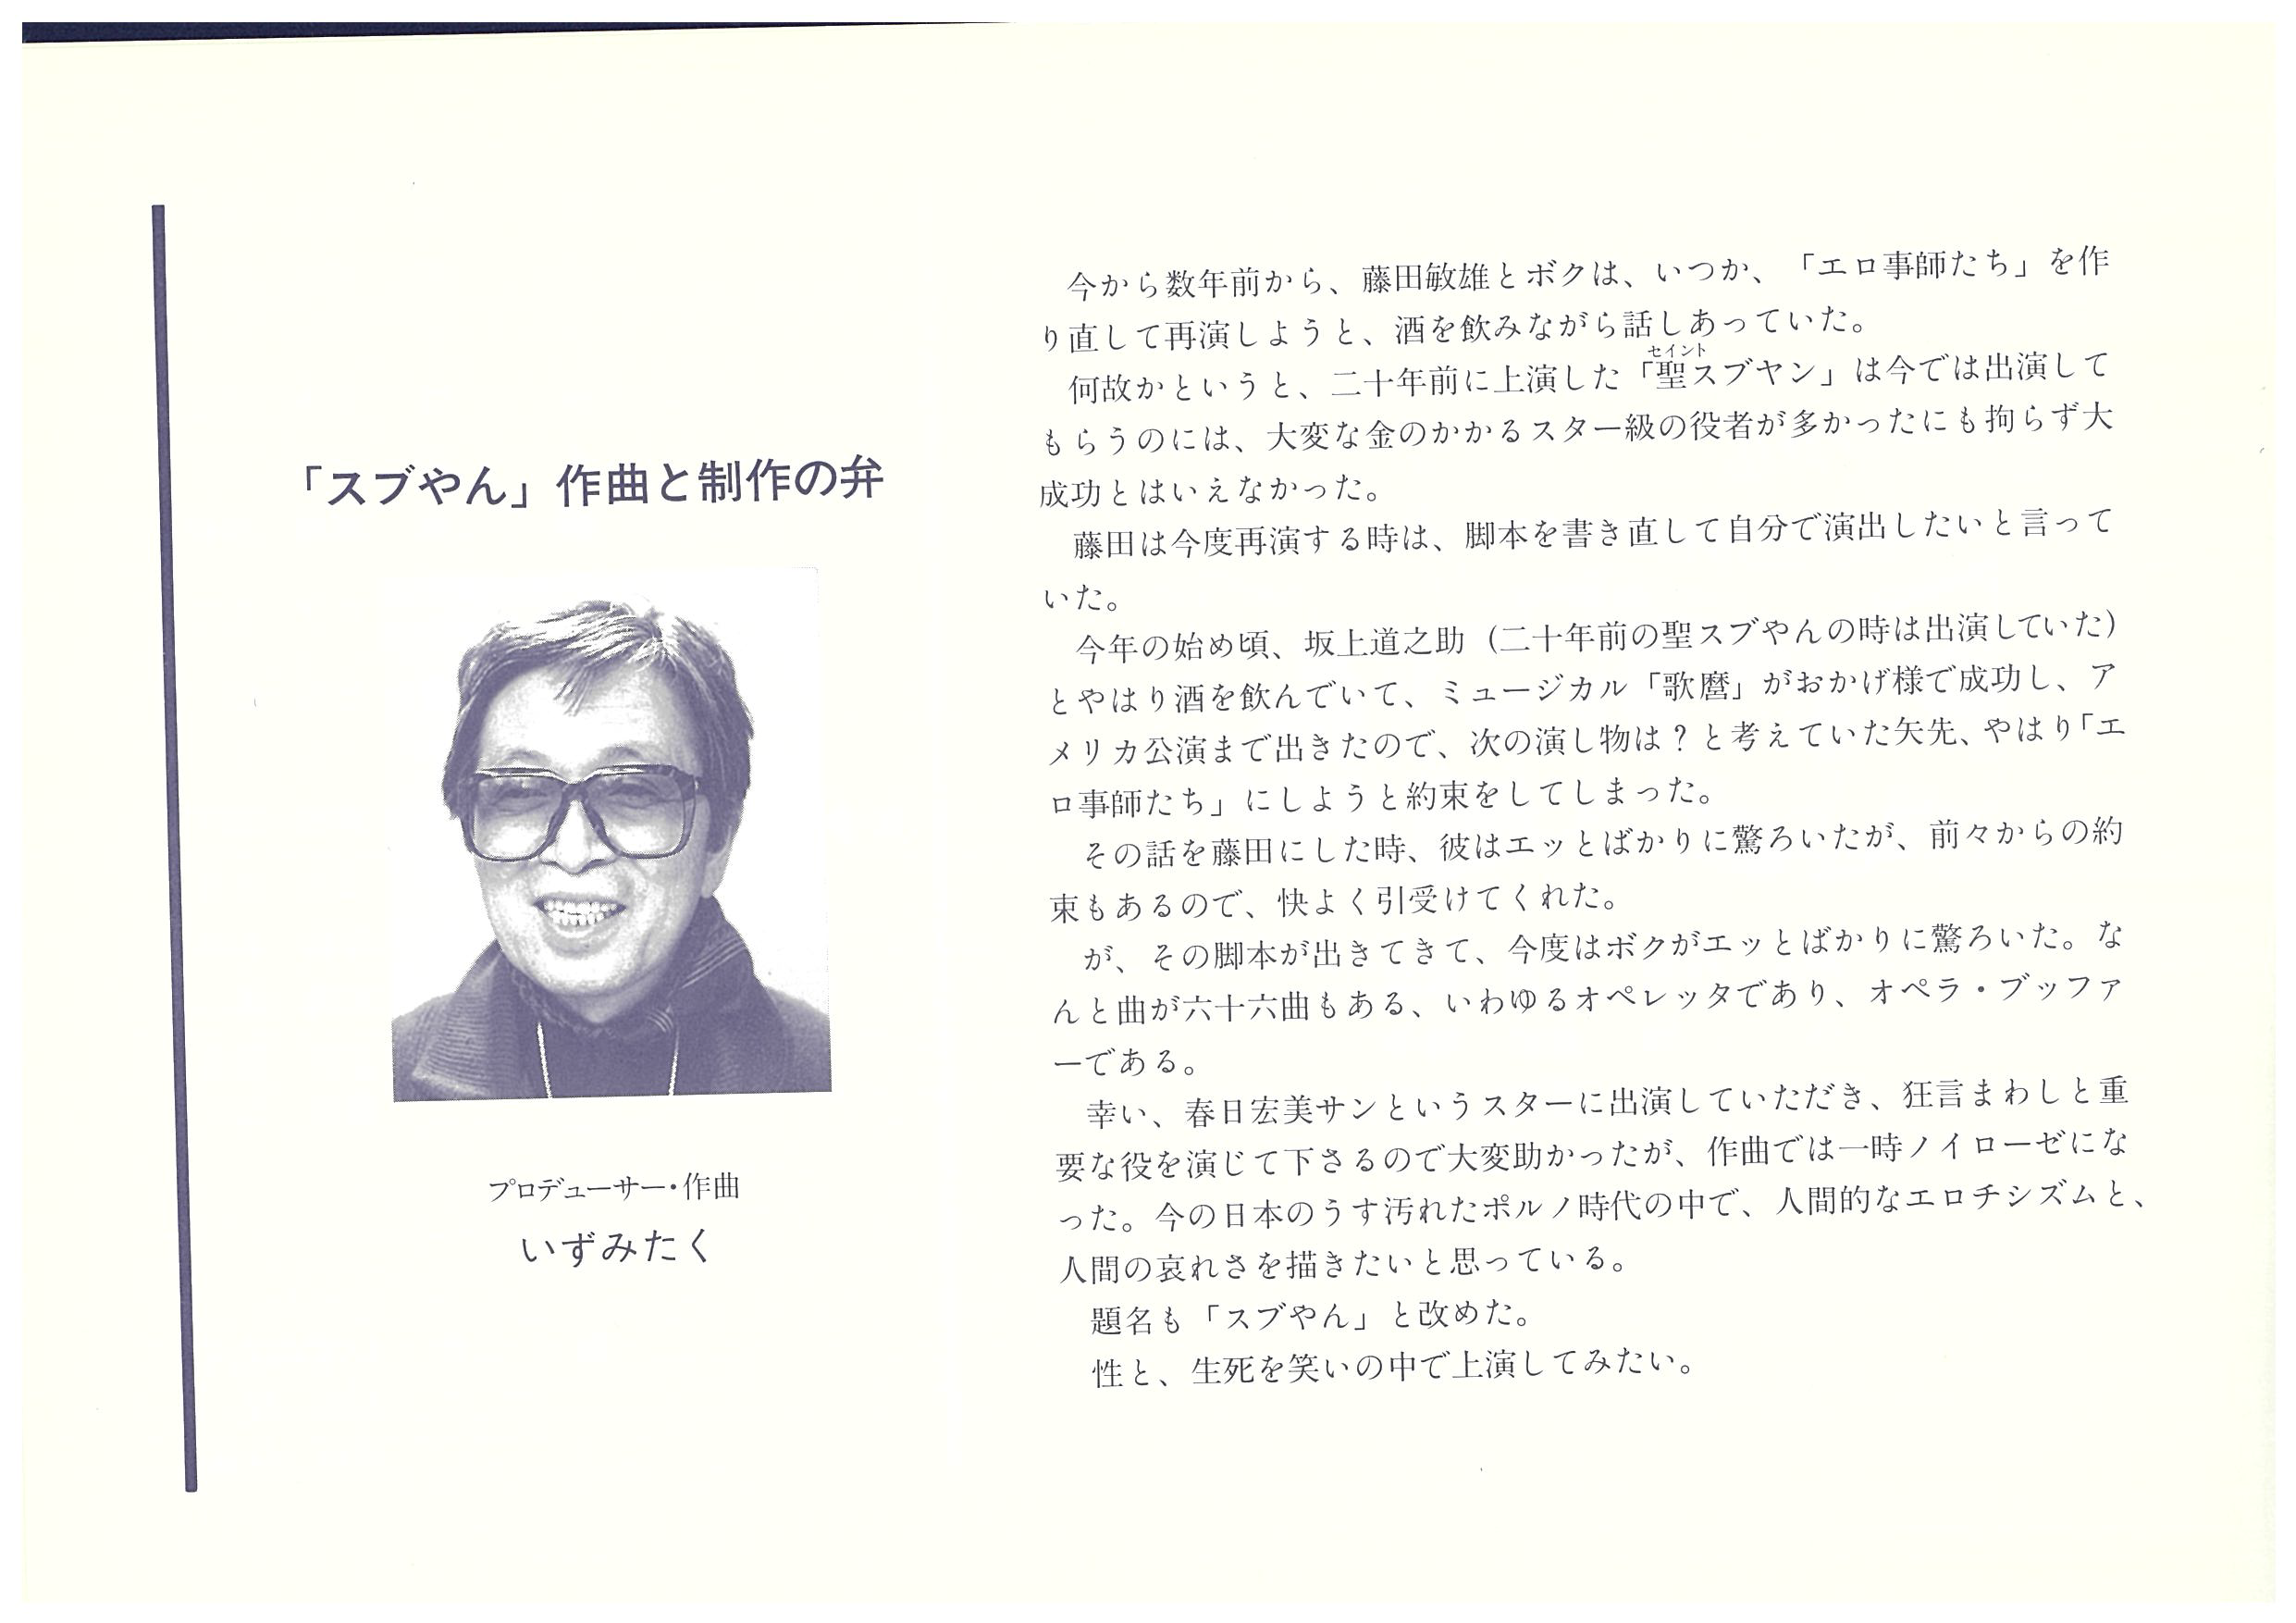 「スブやん」作曲と制作の弁
プロデューサー・作曲
いずみたく
今から数年前から、藤田敏雄とボクは、いつか、「エロ事師たち」を作
り直して再演しようと、酒を飲みながら話しあっていた。
セイント
何故かというと、二十年前に上演した「聖スブヤン」は今では出演して
もらうのには、大変な金のかかるスター級の役者が多かったにも拘らず大
成功とはいえなかった。
藤田は今度再演する時は、脚本を書き直して自分で演出したいと言って
いた。
今年の始め頃、坂上道之助（二十年前の聖スブやんの時は出演していた）
とやはり酒を飲んでいて、ミュージカル「歌麿」がおかげ様で成功し、ア
メリカ公演まで出きたので、次の演し物は？と考えていた矢先、やはり「エ
ロ事師たち」にしようと約束をしてしまった。
その話を藤田にした時、彼はエッとばかりに驚ろいたが、前々からの約
束もあるので、快よく引受けてくれた。
が、その脚本が出きてきて、今度はボクがエッとばかりに驚ろいた。な
んと曲が六十六曲もある、いわゆるオペレッタであり、オペラ・ブッファ
ーである。
幸い、春日宏美サンというスターに出演していただき、狂言まわしと重
要な役を演じて下さるので大変助かったが、作曲では一時ノイローゼにな
った。今の日本のうす汚れたポルノ時代の中で、人間的なエロチシズムと、
人間の哀れさを描きたいと思っている。
題名も「スブやん」と改めた。
性と、生死を笑いの中で上演してみたい。